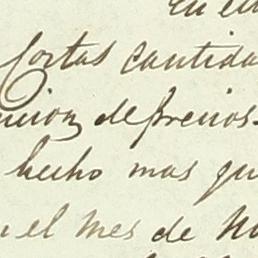 En el
Cortas cantida
nucion de precios.
hecho mas qu
n el Mes de No